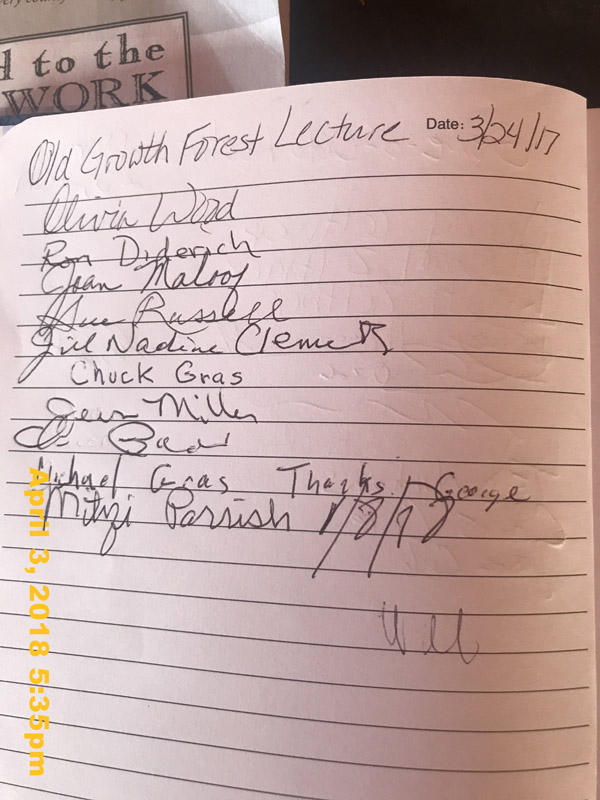 d to the
WORK
Old Growth Forest Lecture Date: 3/24/17
Olivia Wood
Ron Diderich
Joan Maloof
Sue Russell
Jill Nadine Clements
Chuck Gras
Jean Miller
Michael Gras Thanks George
Mitzi Parrish 1/8/18
Will
April 3, 2018 5:35pm